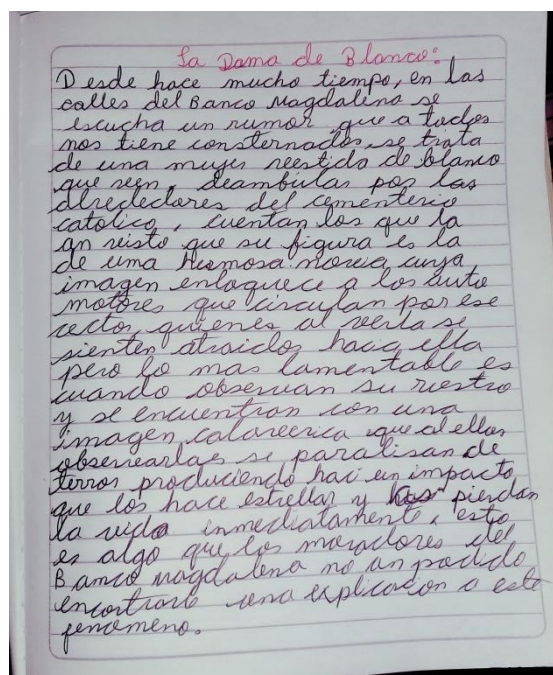 La Dama de Blanco:
Desde hace mucho tiempo, en las
calles del Banco Magdalena se
escucha un rumor que a todos
nos tiene consternados, se trata
de una mujer vestida de blanco
que ven, deambulas por las
alrededores del cementerio
catolico, cuentan los que la
an visto que su figura es la
de una hermosa novia cuya
imagen enloquece a los auto
motores que circulan por ese
sector, quienes al verla se
sienten atraidos hacia ella
pero lo mas lamentable es
cuando observan su rostro
y se encuentran con una
imagen calaverica que al ellos
observarlas se paralisan de
terror produciendo haci un impacto
que los hace estrellar y pierdan
la vida inmediatamente, esto
es algo que los moradores del
Banco Magdalena no an podido
encontrarle una explicacon a este
fenomeno.